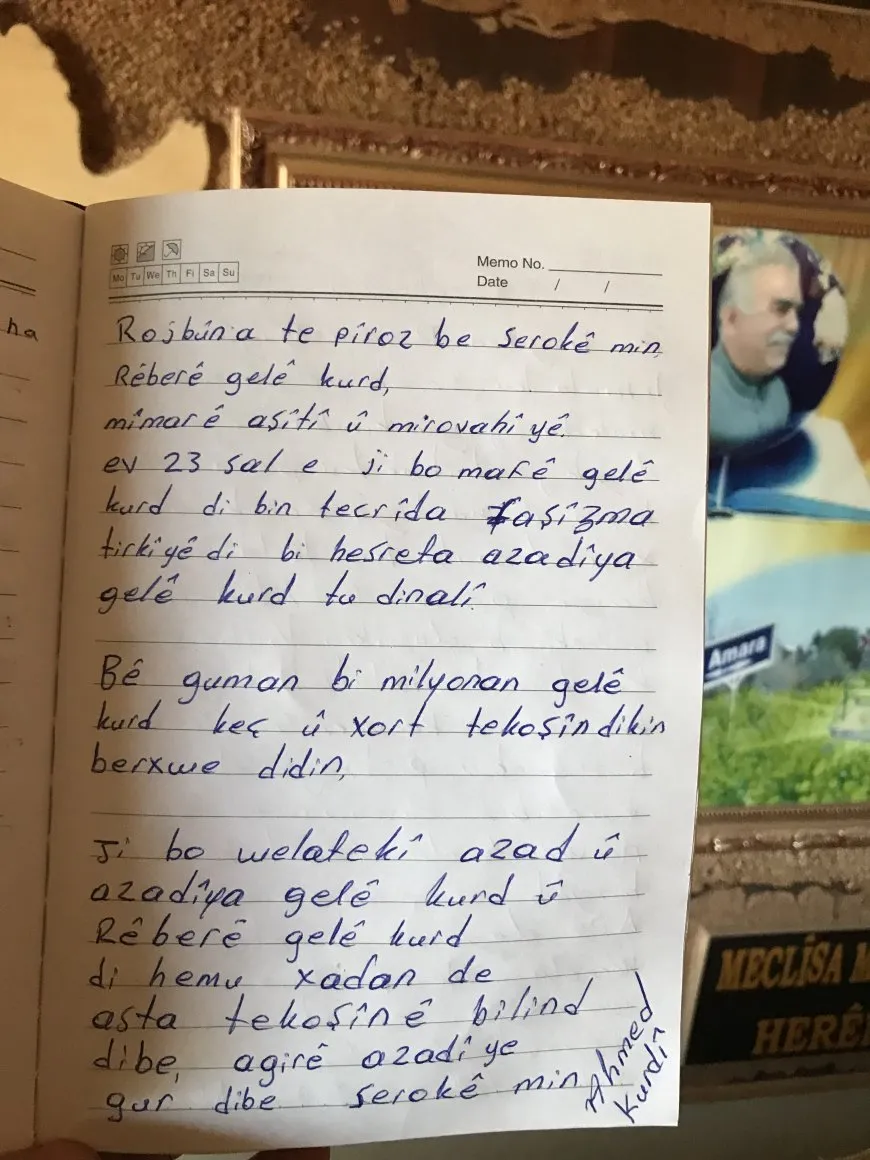 ha
Mo Tu We Th Fi Sa Su
Memo No.
Date / /
Rojbûna te pîroz be serokê min,
Rêberê gelê kurd,
mîmarê aşîtî û mirovahîyê.
ev 23 sal e ji bo mafê gelê
kurd di bin tecrîda faşîzma
tirkîyê di bi hesreta azadîya
gelê kurd tu dinalî.
Bê guman bi milyonan gelê
kurd keç û xort tekoşîn dikin
berxwe didin,
Ji bo welatekî azad û
azadîya gelê kurd û
Rêberê gelê kurd
di hemu xadan de
asta tekoşînê bilind
dibe, agirê azadîye
gur dibe serokê min
Ahmed
Kurdî
Amara
MECLÎSA M
HERÊ